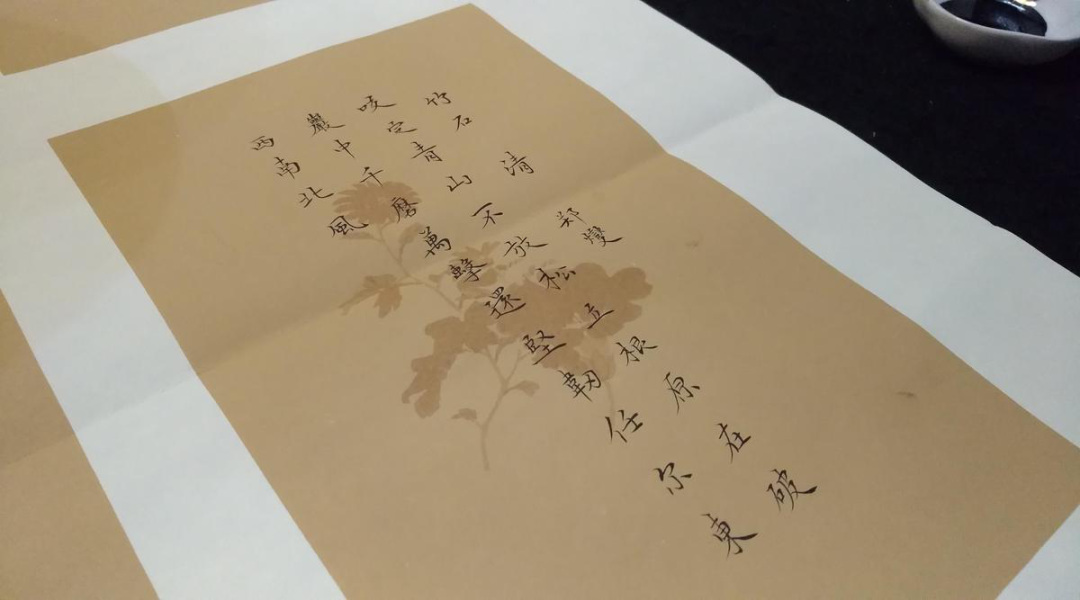 竹石 清 郑燮
咬定青山不放松立根原在破
巖中千磨萬擊還堅韌任尔東
西南北風